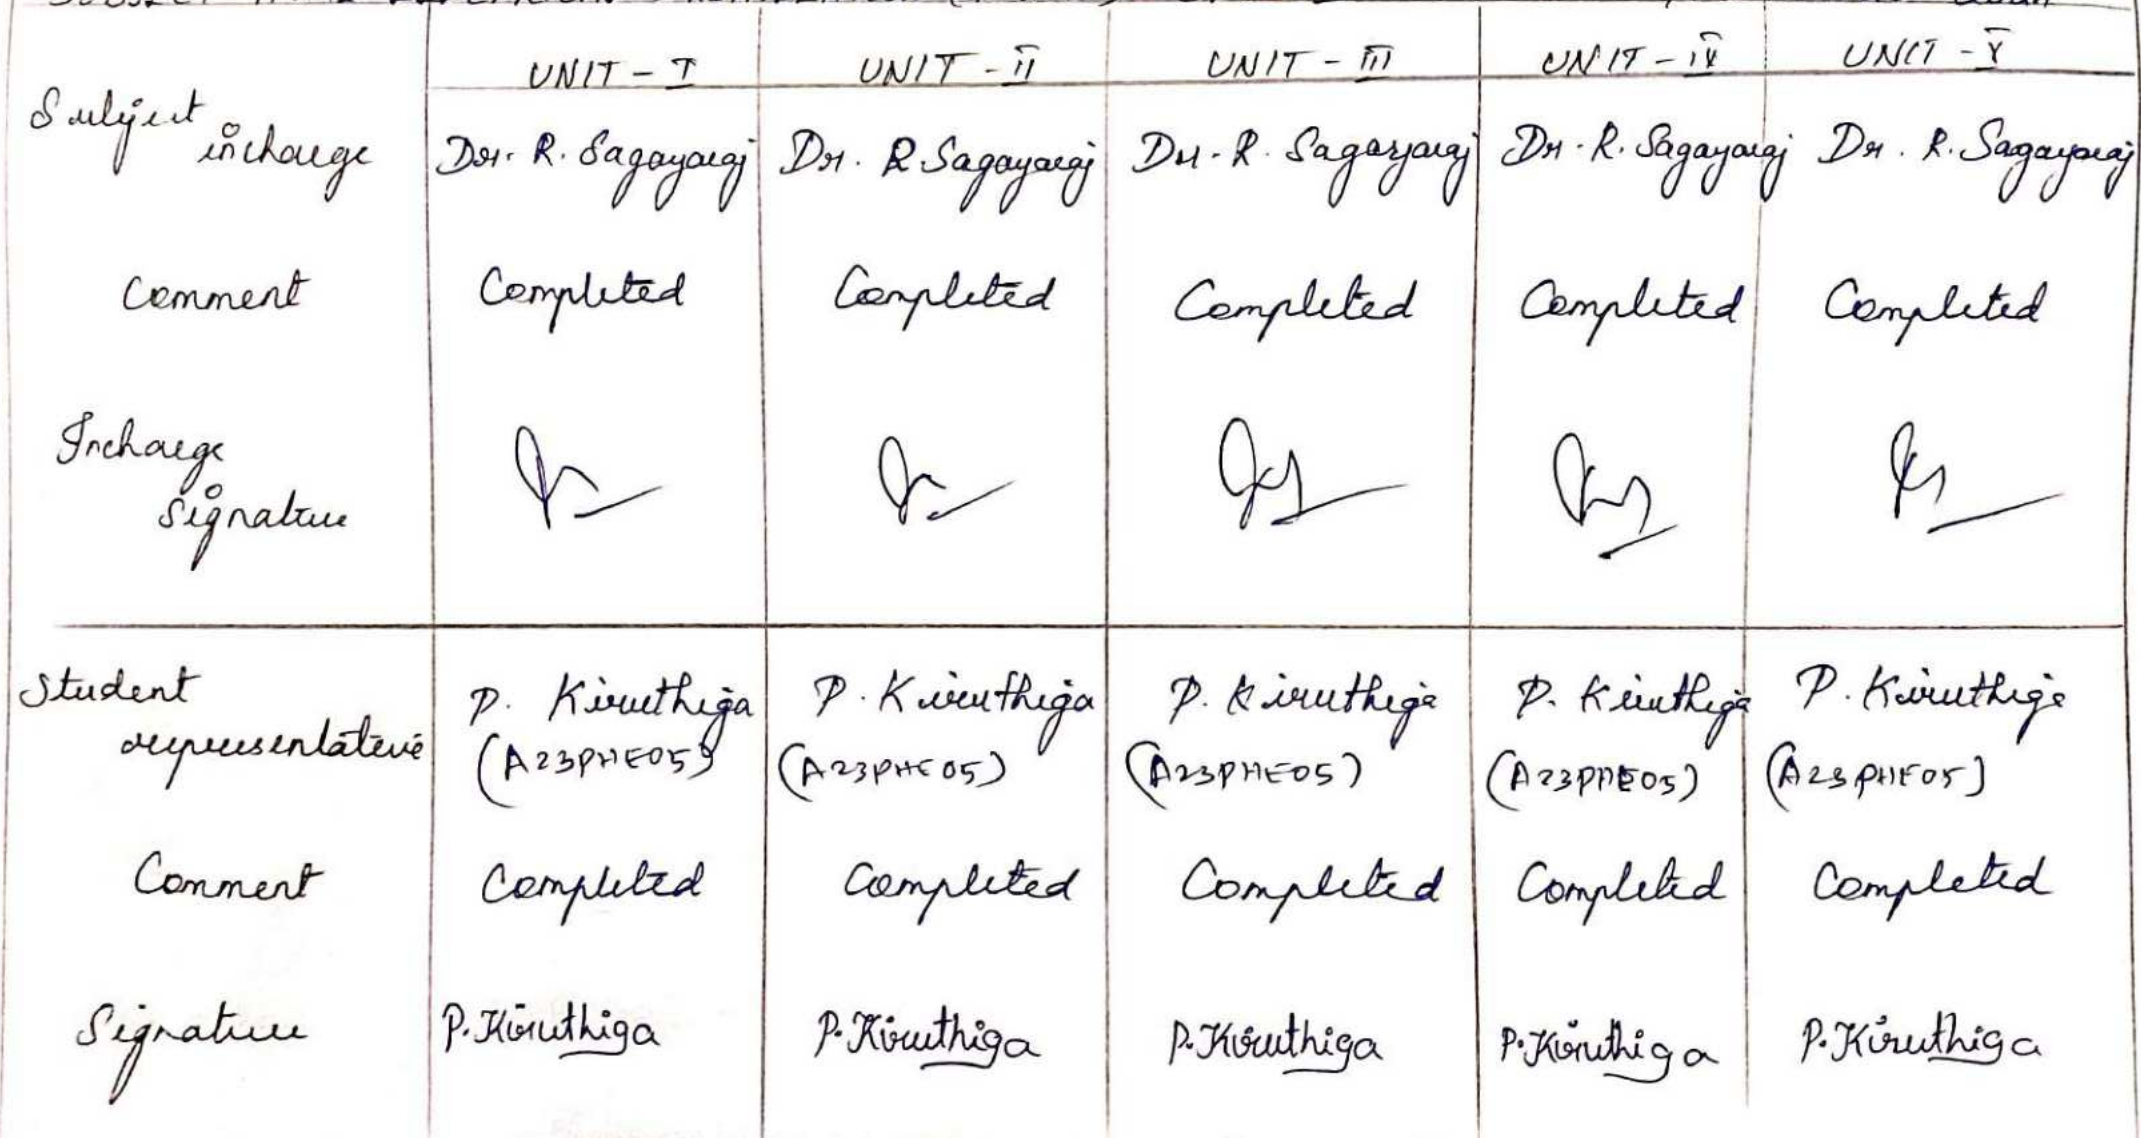 SUBJECT
UNIT - I UNIT - II UNIT - III UNIT - IV UNIT - V
Subject
incharge Dr. R. Sagayaraj Dr. R Sagayaraj Dr. R. Sagayaraj Dr. R. Sagayaraj Dr. R. Sagayaraj
Comment Completed Completed Completed Completed Completed
Incharge
Signature
Student P. Kiruthiga P. Kiruthiga P. Kiruthiga P. Kiruthiga P. Kiruthiga
representative (A23PHE05) (A23PHE05) (A23PHE05) (A23PHE05) (A23PHE05)
Comment Completed Completed Completed Completed Completed
Signature P. Kiruthiga P. Kiruthiga P. Kiruthiga P. Kiruthiga P. Kiruthiga